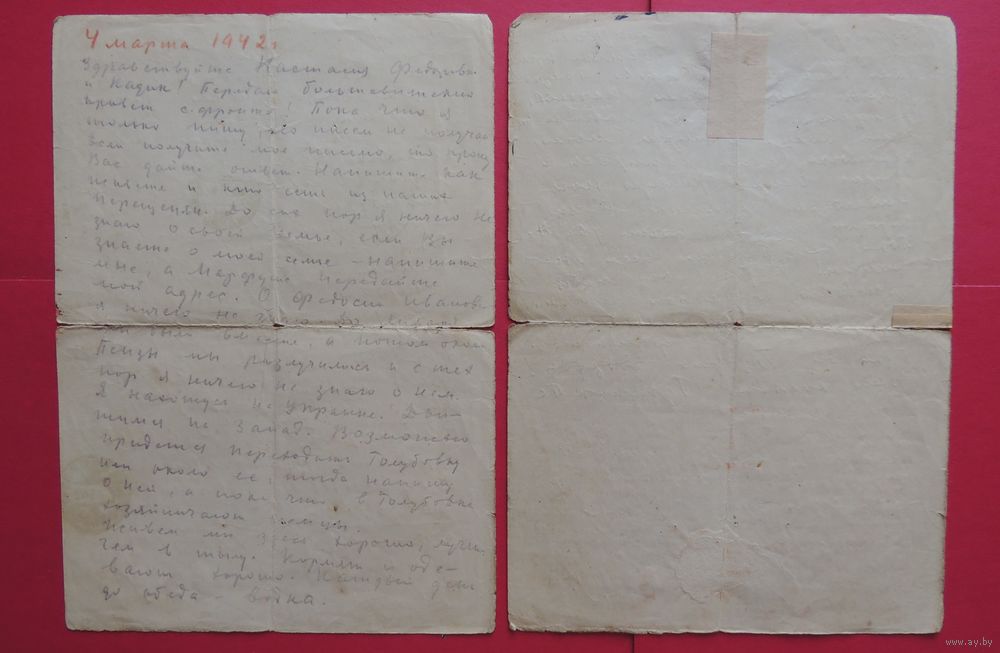 4 марта 1942 г
Здравствуйте Настасия
и Кадик! Передаю большевитский
привет с фронта! Пока что я
только пишу, писем не получаю
Если получите мое письмо, то прошу
Вас дайте ответ. Напишите как
живете и кто есть из наших
До сих пор я ничего не
знаю о своей семье, если Вы
знаете о моей семье - напишите
мне, а Марфуше передайте
мой адрес. О Федосии Иванов
я ничего не знаю. До
были вместе, а потом около
Пензы мы разлучились и с тех
пор я ничего не знаю о нем.
Я нахожусь на Украине. Дви-
жимся на Запад. Возможно
придется переходить Голубовку
или около ее, тогда напишу
о ней, а пока что в Голубовке
хозяйничают немцы.
Живем мы здесь хорошо, лучше
чем в тылу. Кормят и оде-
вают хорошо. Каждый день
до обеда - водка.
www.ay.by